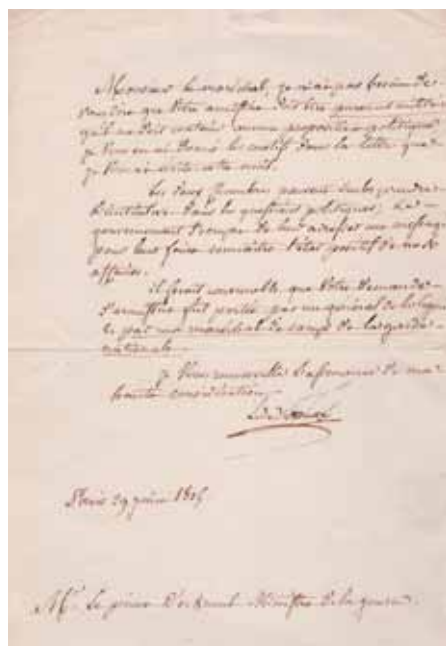 Monsieur le maréchal, je n'ai pas besoin de
vous dire que Votre armistice doit être purement militaire
qu'il ne doit contenir aucune proposition politique
je vous en ai donné le motif dans la lettre que
je vous ai écrite cette nuit.
Les deux Chambres peuvent seules prendre
l'initiative dans les questions politiques; le
gouvernement s'occupe de leur adresser un message
pour leur faire connaître l'état positif de nos
affaires.
il serait convenable que Votre demande
d'armistice fut portée par un général de la ligne
et par un maréchal de camp de la garde
nationale.
je Vous renouvelle l'assurance de ma
haute considération
Paris 29 juin 1815.
Mr. Le prince d'Eckmuhl Ministre de la guerre.